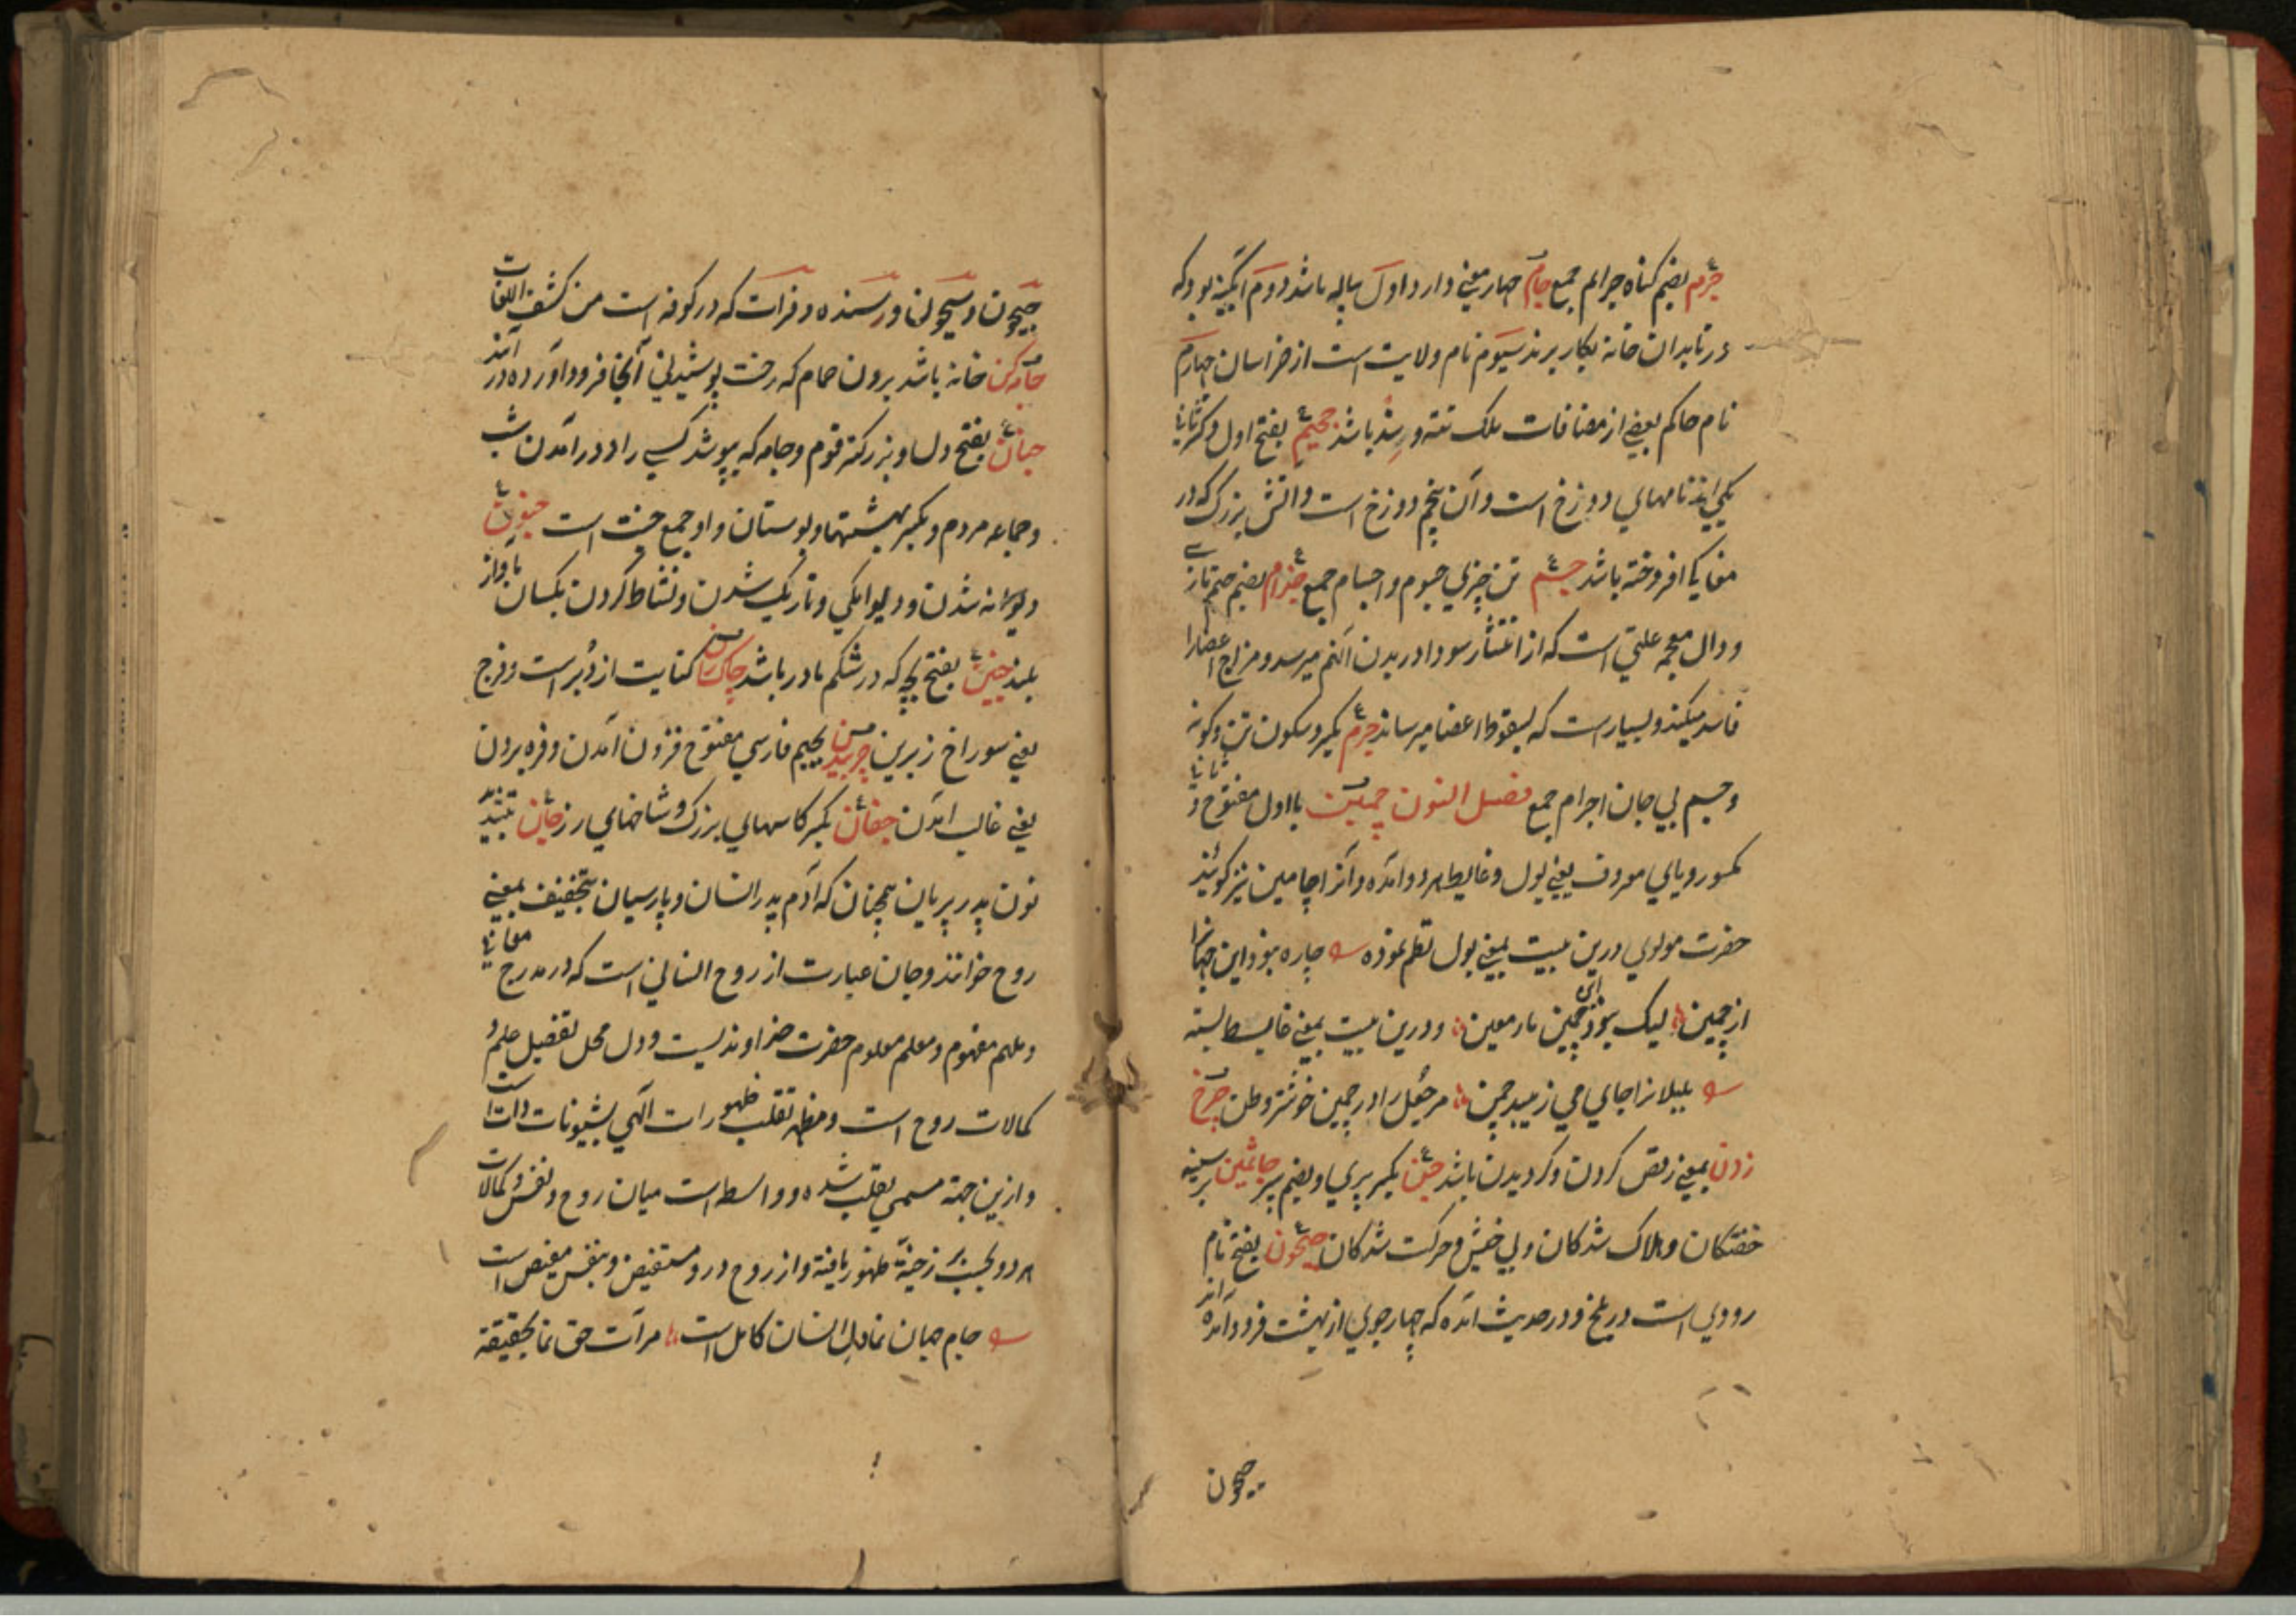 جرم بضم کناه جرایم جمع جام چهار معنی دارد اول پیاله باشد دوم ابکینه بود که
در تابدان خانه بکار برند سیوم نام ولایت است از خراسان چهارم
نام حاکم بعضی از مضافات ملک تته و سند باشد جحیم بفتح اول و کسر ثانیا
یکی از نامهای دوزخ است و آن پنجم دوزخ است و اتش بزرک که در
مغاکی افروخته باشد جسم تن چیزی جسوم و اجسام جمع جذام بضم جیم تازی
و دال معجمه علتی است که از انتشار سودا در بدن الم میرسد و مزاج اعضا را
فاسد میکند و بسیار است که بسقوط اعضا میرساند جرم بکسر و سکون تن و کونه
و جسم بی جان اجرام جمع فصل النون چمین با اول مفتوح و ثانیا
مکسور و یای معروف یعنی بول و غایط هر دو آمده و آنرا چامین نیز کویند
حضرت مولوی درین بیت بمعنی بول نظم نموده چاره نبود این جهانرا
از چمین لیک نبود آن چمین ماء معین و درین بیت بمعنی غایط بسته
بلبلانرا جای می زیبد چمن مر جعل را در چمین خوشتر وطن چرخ
زدن بمعنی رقص کردن و کردیدن باشد جن بکسر پری و بضم سپر جاثمین بر سینه
خفتکان و هلاک شدکان و بی خبش و حرکت شدکان جیحون بفتح نام
رودی است در بلخ و در حدیث آمده که چهار جوی از بهشت فرود آمده اند
جیحون
جیحون و سیحون و رسنده و فرات که در کوفه است من کشف اللغات
جامه کن خانه باشد برون حمام که رخت پوشیدنی آنجا فرود آورده در آیند
جنان بفتح دل و بزرکتر قوم و جامه که بپوشد کسی را و در آمدن شب
و جماعه مردم و بکسر بهشتها و بوستان و او جمع جنت است جنون
دیوانه شدن و دیوانکی و تاریک شدن و نشاط کردن مکسان باواز
بلند جنین بفتح بچه که در شکم مادر باشد چاک ران کنایت از دبر است و فرج
یعنی سوراخ زیرین چربیدن بجیم فارسی مفتوح فزون آمدن و فره بردن
یعنی غالب آمدن جفان بکسر کاسهای بزرک و شاخهای رز جان بتشدید
نون پدر پریان همچنان که آدم پدر انسان و پارسیان بتخفیف بمعنی
روح خوانند و جان عبارت از روح انسانی است که در مدرج معانیا
و ملهم مفهوم و معلم معلوم حضرت خداوندیست و دل محل تفصیل علم و
کمالات روح است و مظهر تقلب ظهورات آلهی بشیونات ذات است
و ازین جهة مسمی بقلب شده و واسطه است میان روح و نفس و کمالات
هر دو بحسب برزخیة ظهور یافته و از روح در و مستفیض و بنفس مفیض است
جام جهان نما دل انسان کامل است مرآت حق نما بحقیقة